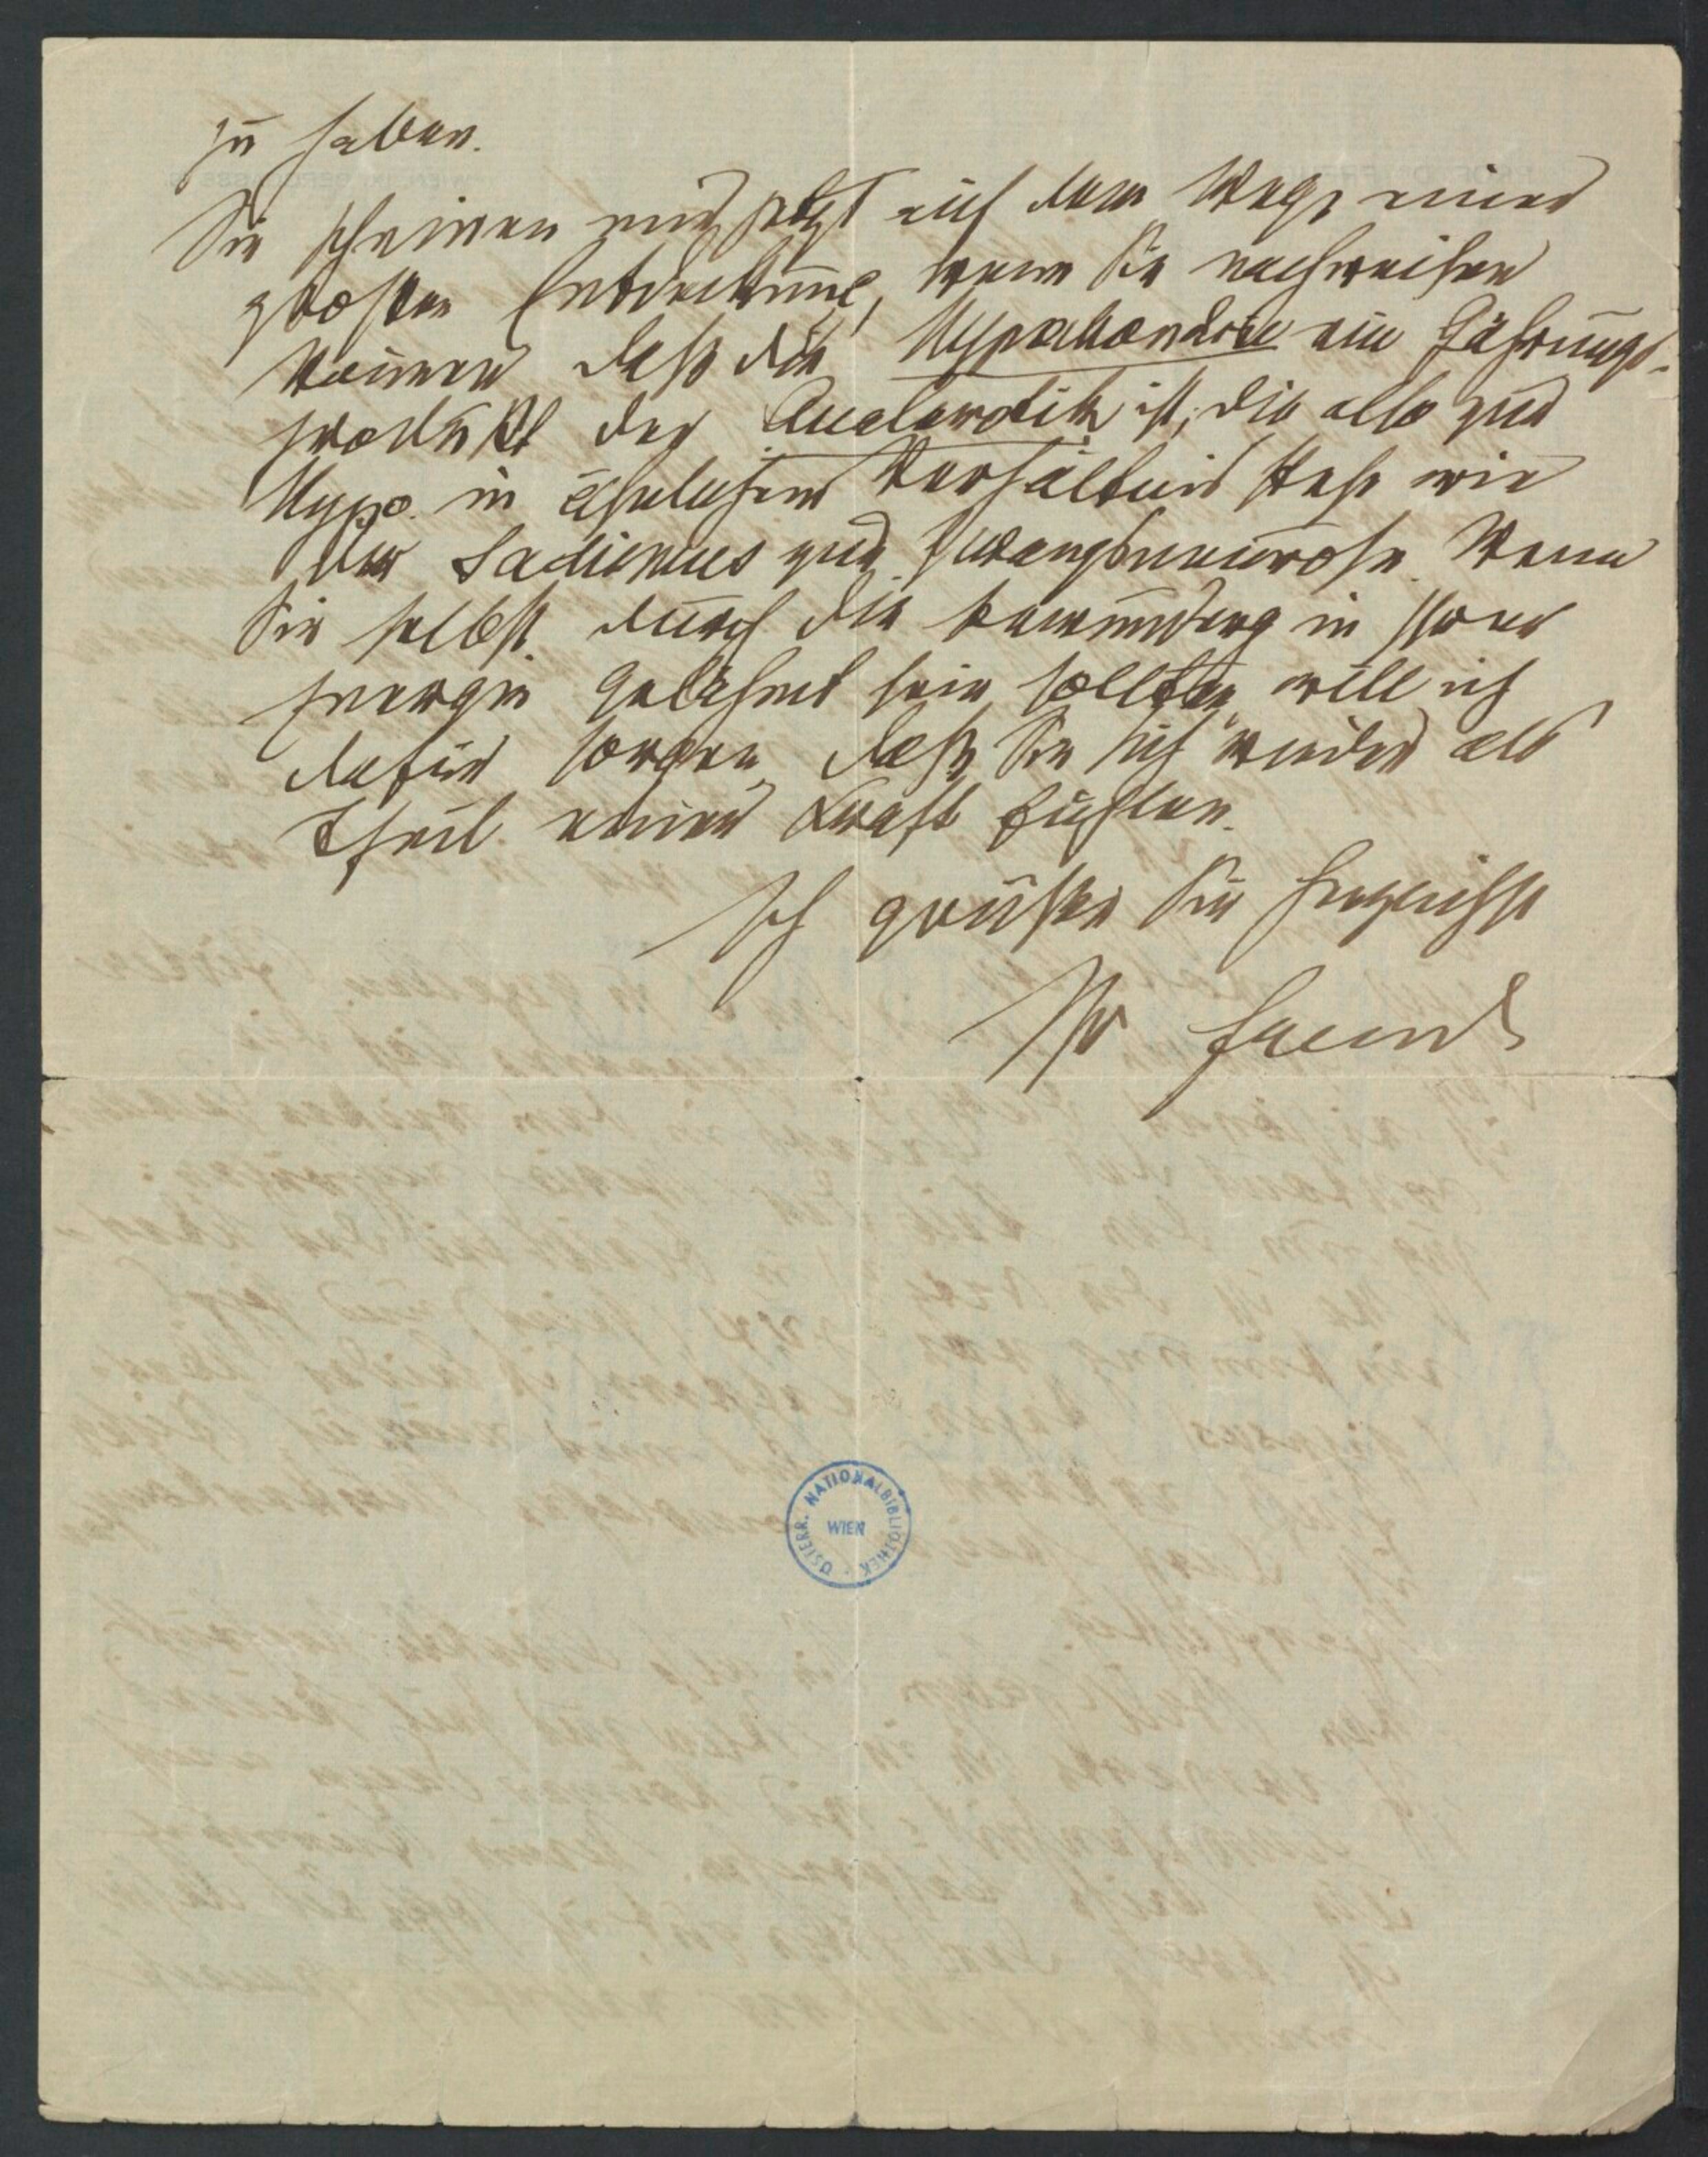 zu haben.
Sie scheinen mir jetzt auf dem Wege einer
großen Entdeckung, wenn Sie nachweisen
können daß die Hypochondrie ein Gährungs-
produkt der Analerotik ist, die also zur
Hypo. in ähnlichem Verhältnis steht wie
der Sadismus zur Zwangsneurose. Wenn
Sie selbst durch die in Ihrer
Energie gelähmt sein sollten will ich
dafür sorgen, daß Sie sich wieder als
Theil einer Kraft fühlen.
Ich grüße Sie herzlichst
Ihr Freud
ÖSTERR. NATIONALBIBLIOTHEK
WIEN